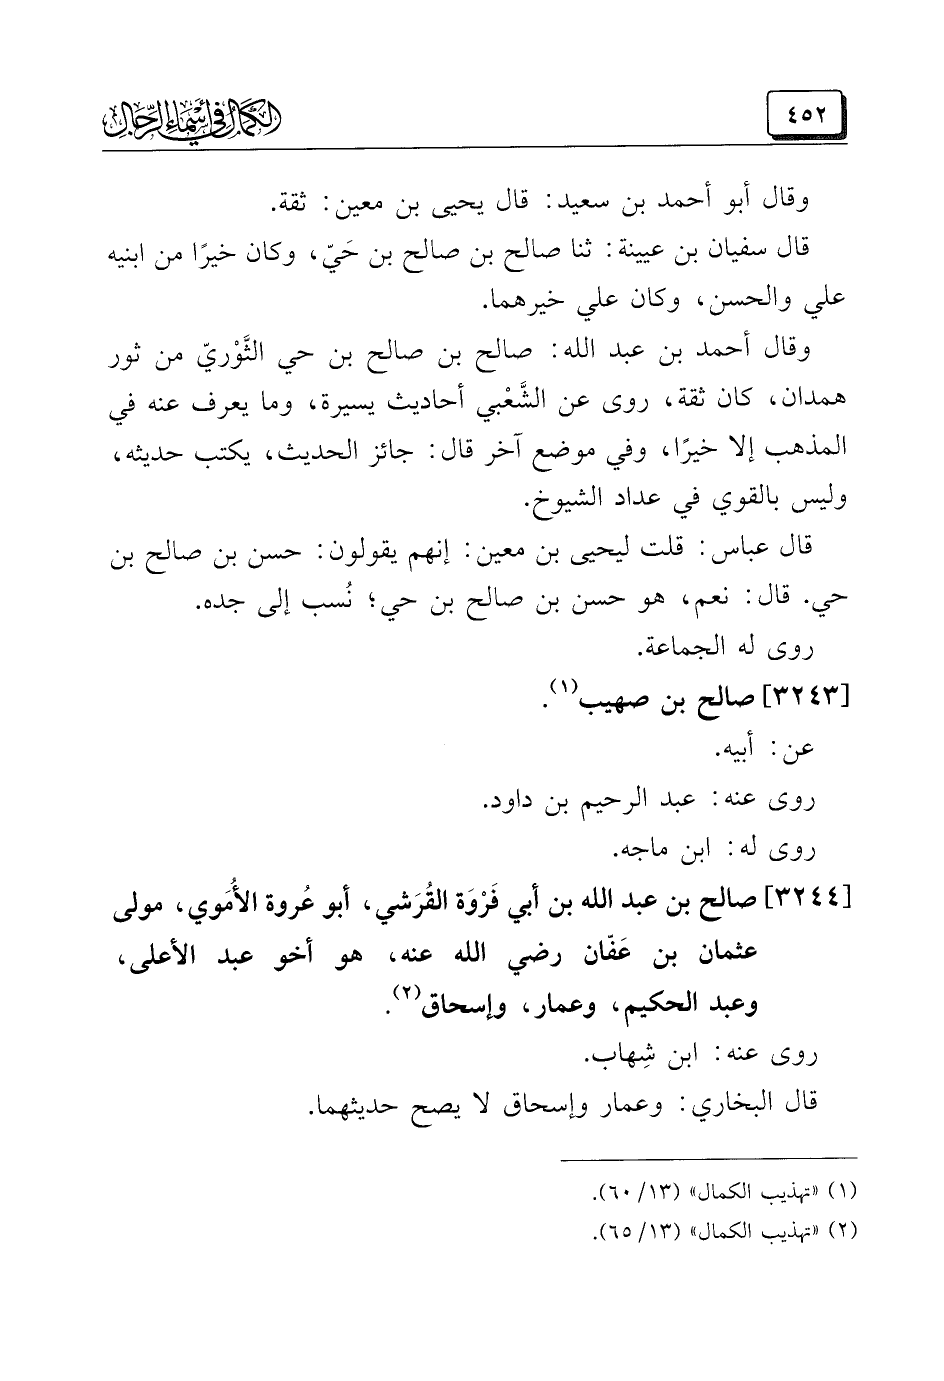 ٤٥٢
الكمال في أسماء الرجال
وقال أبو أحمد بن سعيد: قال يحيى بن معين: ثقة.
قال سفيان بن عيينة: ثنا صالح بن صالح بن حَيّ، وكان خيرًا من ابنيه
علي والحسن، وكان علي خيرهما.
وقال أحمد بن عبد الله: صالح بن صالح بن حي الثَّوْريّ من ثور
همدان، كان ثقة، روى عن الشَّعْبي أحاديث يسيرة، وما يعرف عنه في
المذهب إلا خيرًا، وفي موضع آخر قال: جائز الحديث، يكتب حديثه،
وليس بالقوي في عداد الشيوخ.
قال عباس: قلت ليحيى بن معين: إنهم يقولون: حسن بن صالح بن
حي. قال: نعم، هو حسن بن صالح بن حي؛ نُسب إلى جده.
روى له الجماعة.
[٣٢٤٣] صالح بن صهيب(١).
عن: أبيه.
روى عنه: عبد الرحيم بن داود.
روى له: ابن ماجه.
[٣٢٤٤] صالح بن عبد الله بن أبي فَرْوَة القُرَشي، أبو عُروة الأُمَوي، مولى
عثمان بن عَفّان رضي الله عنه، هو أخو عبد الأعلى،
وعبد الحكيم، وعمار، وإسحاق(٢).
روى عنه: ابن شِهاب.
قال البخاري: وعمار وإسحاق لا يصح حديثهما.
(١) «تهذيب الكمال» (١٣/ ٦٠).
(٢) «تهذيب الكمال» (١٣/ ٦٥).